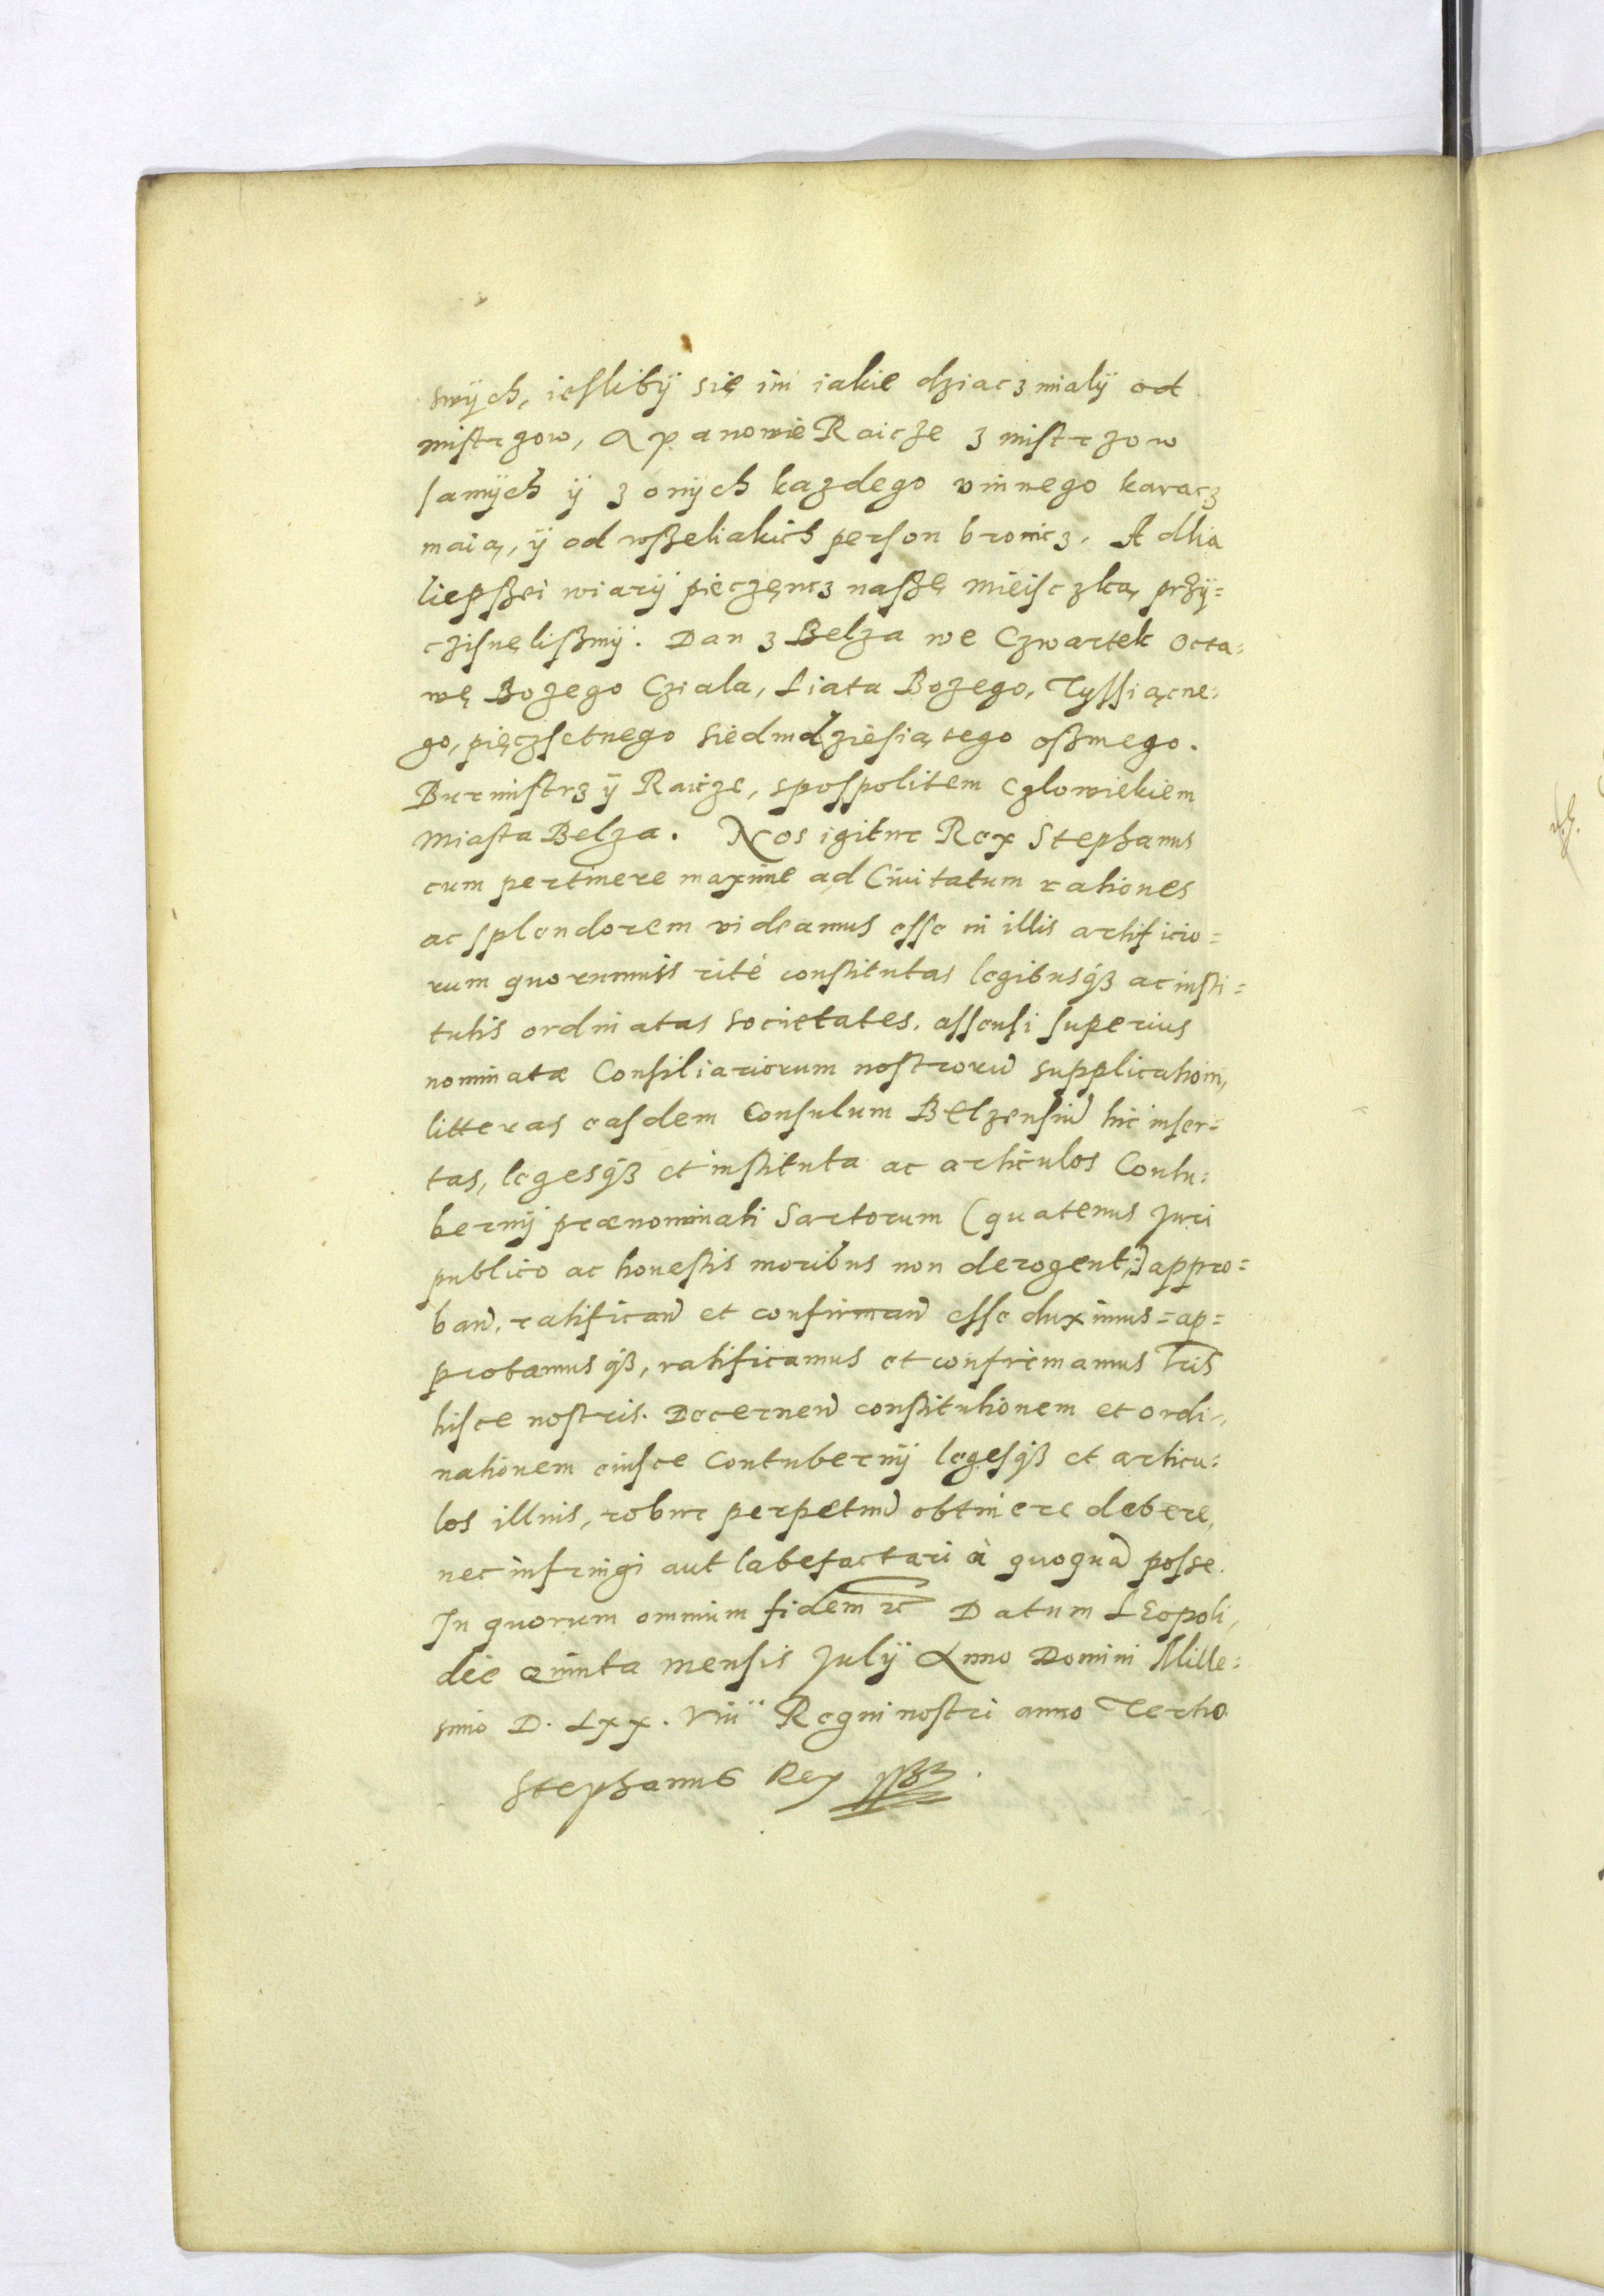 swÿch, ieſlibÿ się im iakie dziacz mialÿ od
miſtrzow, a panowie Raicze z miſtrzow
ſamÿch ÿ z onÿch kazdego winnego karacz
maią, ÿ od wſzeliakich perſon bronicz. A dlia
liepſzei wiarÿ pieczęncz naſzę mieiſczką przÿ=
cziſnęliſzmÿ. Dan z Belza we Czwartek Octa=
wę Bozego Cziala, Liata Bozego, Tyſſiącne=
go, pięczſetnego siedmdzieſiątego oſzmego.
Burmiſtrz ÿ Raicze, spoſpolitem czlowiekiem
Miaſta Belza. Nos igitur Rex Stephanus
cum pertinere maxime ad Ciuitatum rationes
ac ſplendorem videamus eſſe in illis artificio=
rum quorumuis ritè conſtitutas legibusqꝫ ac inſti=
tutis ordinatas societates. aſſenſi ſuperius
nominatæ Conſiliariorum noſtrorũ supplicationi,
litteras eaſdem Conſulum Belzenſiũ hic inſer=
tas, legesqꝫ et inſtituta ac articulos Contu=
bernij prænominati Sartorum (quatenus Juri
publico ac honeſtis moribus non derogent;) appro=
band. ratificand et confirmand eſſe duximus = ap=
probamusqꝫ, ratificamus et confirmamus lris
hiſce noſtris. Decernen conſtitutionem et ordi=
nationem eiuſce Contubernij legeſqꝫ et articu=
los illius, robur perpetuũ obtinere debere,
nec infringi aut labefactari à quoquã poſse.
In quorum omnium fidem ꝛc Datum LEopoli,
die Quinta Menſis Julÿ Anno Domini Mille=
simo D. Lxx. Viii Regni noſtri anno Tertio
Stephanus Rex ſſꝫ.